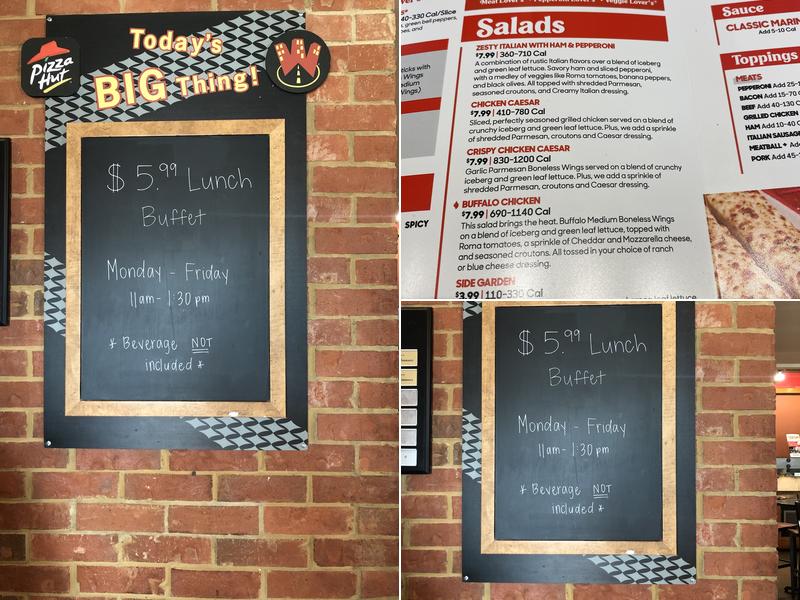 Today's
BIG Thing!
Pizza
Hut
W
$ 5.99 Lunch
Buffet
Monday - Friday
11am - 1:30 pm
* Beverage NOT
included *
40-330 Cal/Slice
green bell peppers,
Salads
ZESTY ITALIAN WITH HAM & PEPPERONI
$7.99 | 360-710 Cal
A combination of rustic Italian flavors over a blend of iceberg
and green leaf lettuce. Savory ham and sliced pepperoni,
with a medley of veggies like Roma tomatoes, banana peppers,
and black olives. All topped with shredded Parmesan,
seasoned croutons, and Creamy Italian dressing.
CHICKEN CAESAR
$7.99 | 410-780 Cal
Sliced, perfectly seasoned grilled chicken served on a blend of
crunchy iceberg and green leaf lettuce. Plus, we add a sprinkle
of shredded Parmesan, croutons and Caesar dressing.
CRISPY CHICKEN CAESAR
$7.99 | 830-1200 Cal
Garlic Parmesan Boneless Wings served on a blend of crunchy
iceberg and green leaf lettuce. Plus, we add a sprinkle of
shredded Parmesan, croutons and Caesar dressing.
BUFFALO CHICKEN
$7.99 | 690-1140 Cal
This salad brings the heat. Buffalo Medium Boneless Wings
on a blend of iceberg and green leaf lettuce, topped with
Roma tomatoes, a sprinkle of Cheddar and Mozzarella cheese,
and seasoned croutons. All tossed in your choice of ranch
or blue cheese dressing.
SIDE GARDEN
$3.99 | 110-330 Cal
leaf lettuce
Sticks with
Wings
Medium)
Wings
SPICY
Sauce
CLASSIC MARIN
Add 5-10 Cal
Toppings
MEATS
PEPPERONI Add 25-1
BACON Add 15-70 C
BEEF Add 40-130 C
GRILLED CHICKEN
HAM Add 10-40 C
ITALIAN SAUSAGE
MEATBALL Ad
PORK Add 45-
$ 5.99 Lunch
Buffet
Monday - Friday
11am - 1:30 pm
* Beverage NOT
included *